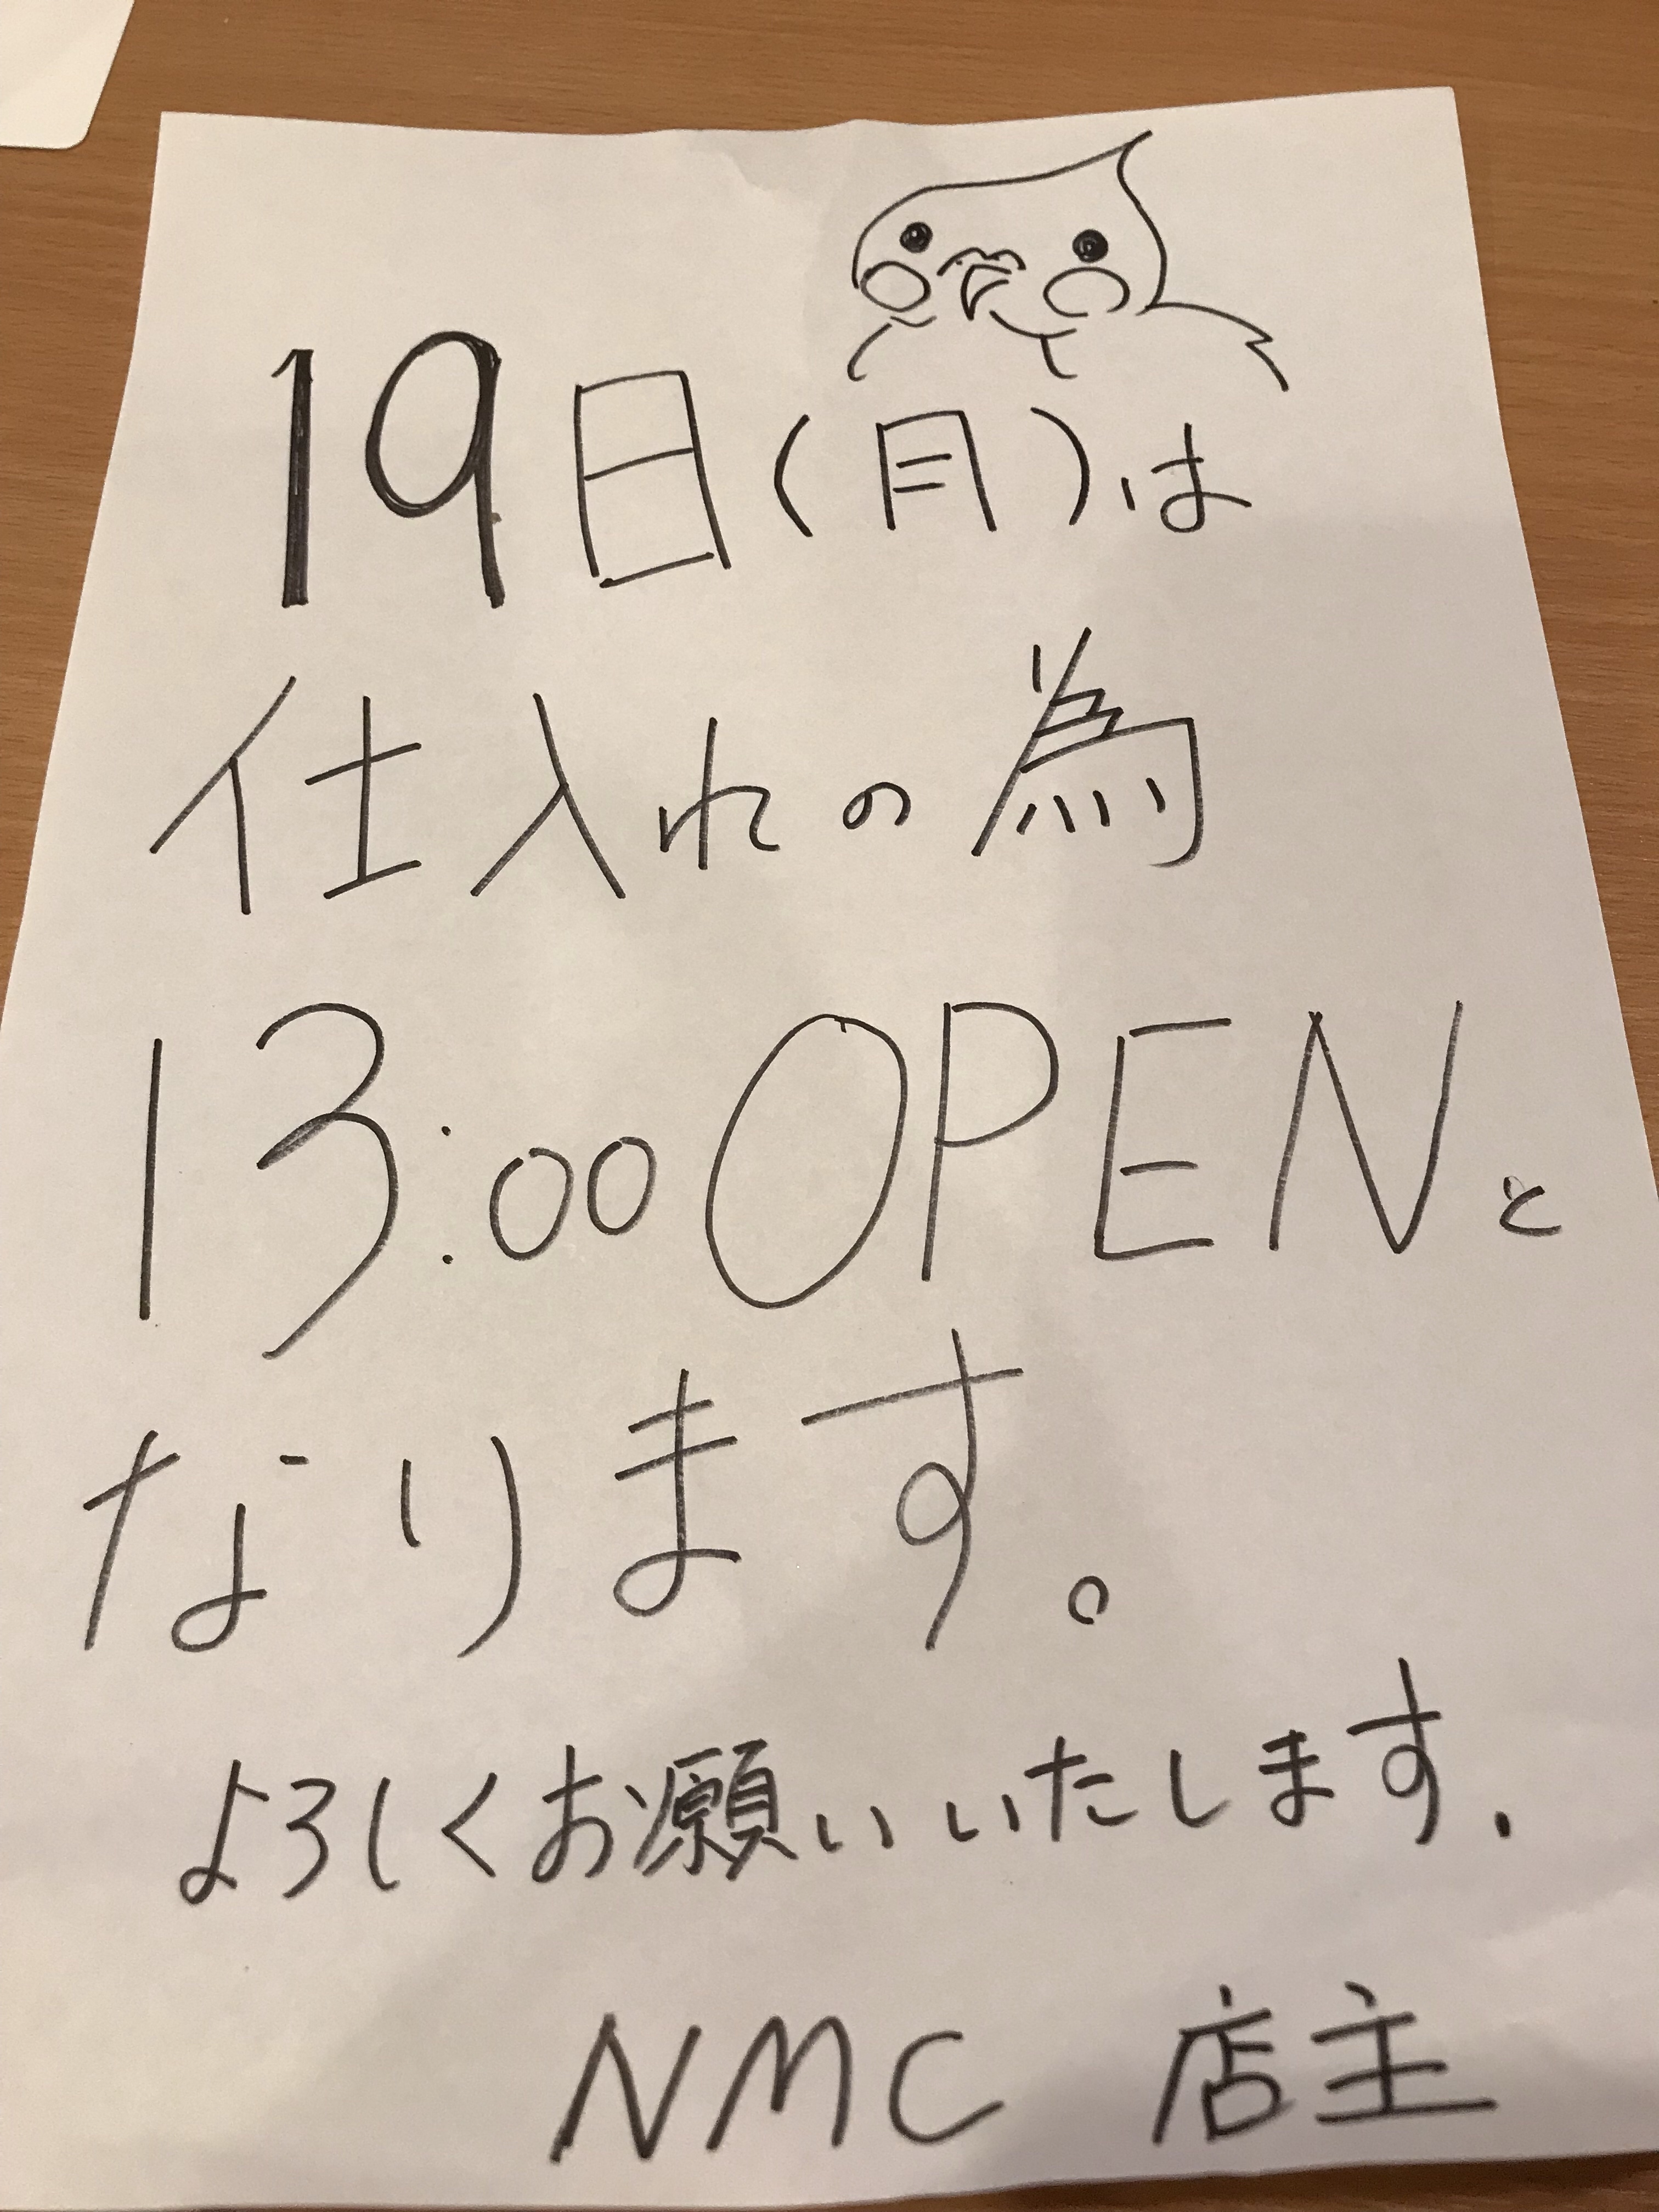 19日(月)は
仕入れの為
13:00 OPENと
なります。
よろしくお願いいたします.
NMC 店主